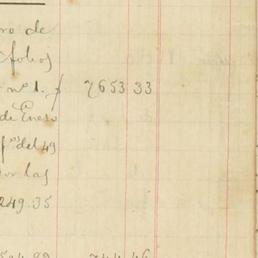 no de
folios
nº 1. f 7653 33
de Enero
fºs del 49
por las
249.35